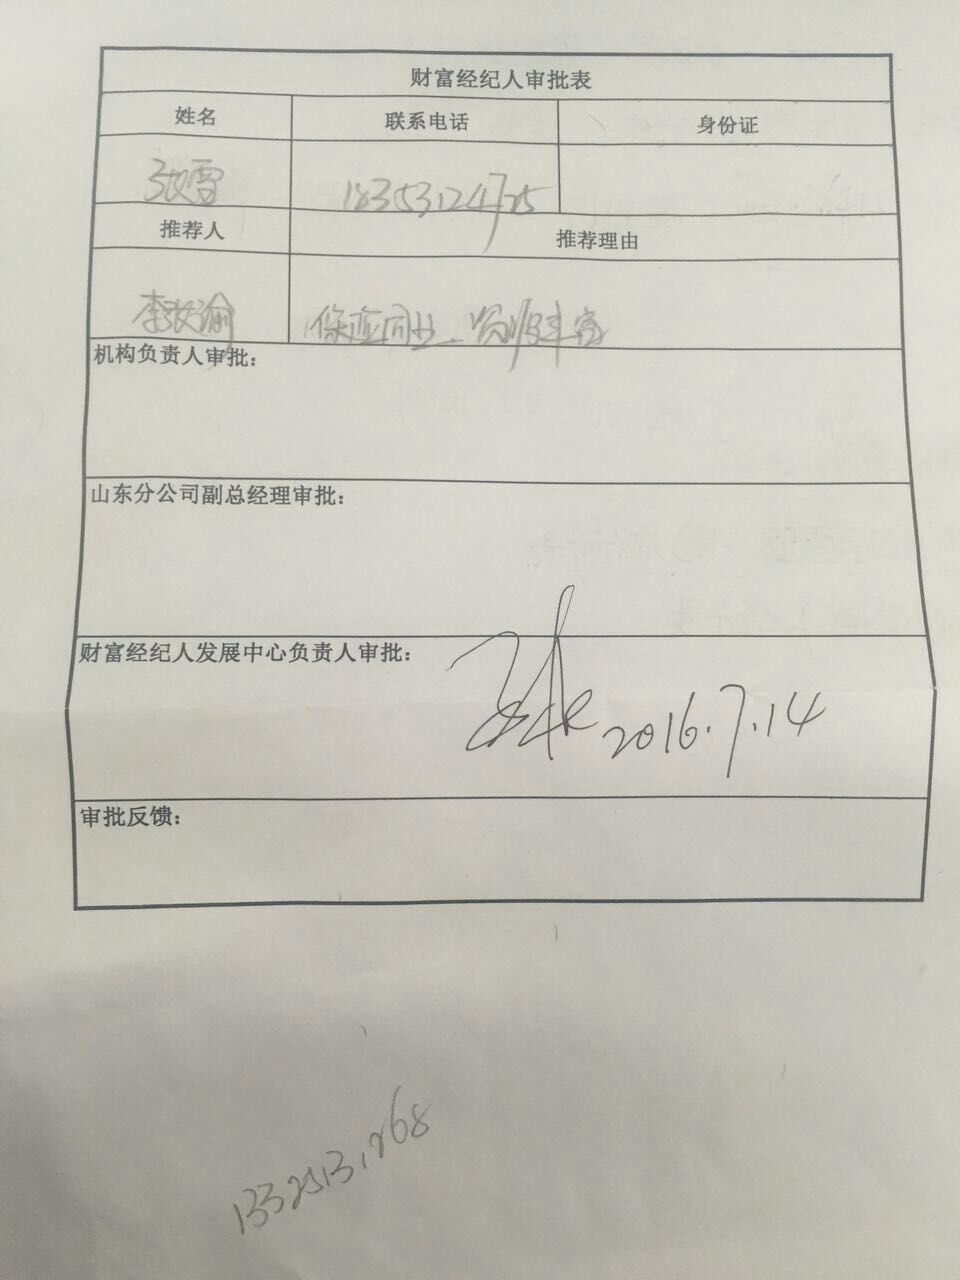 财富经纪人审批表
姓名 联系电话 身份证
张雪 18353124725
推荐人 推荐理由
李玫瑜 保险同业
机构负责人审批：
山东分公司副总经理审批：
财富经纪人发展中心负责人审批：
2016.7.14
审批反馈：